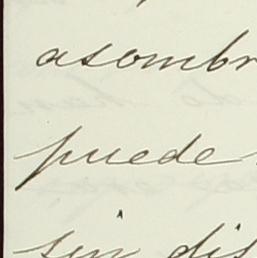 asombr
puede
sin dis